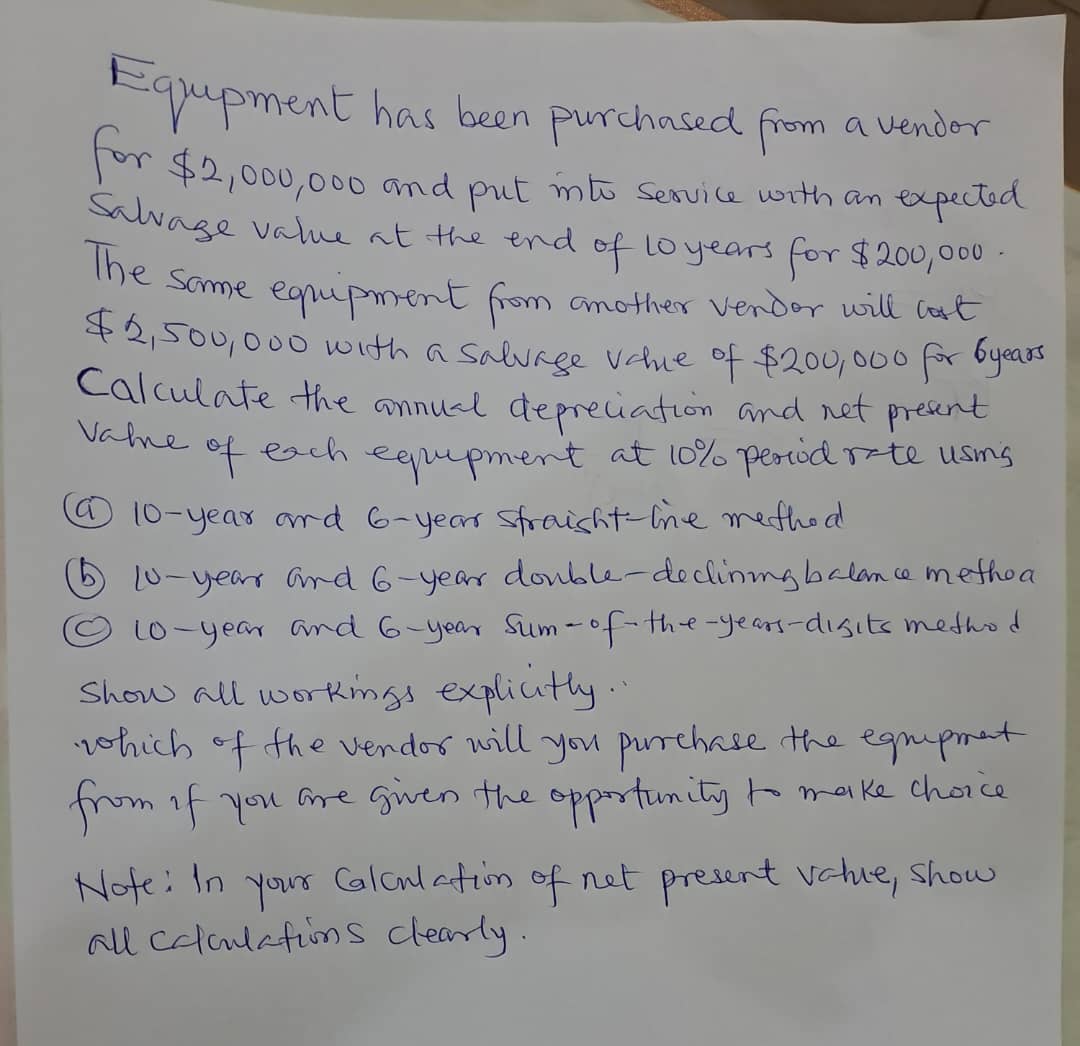 Equipment has been purchased from a vendor
for $2,000,000 and put into service with an expected
Salvage value at the end of 10 years for $200,000.
The same equipment from another vendor will cost
$2,500,000 with a salvage value of $200,000 for 6years
Calculate the annual depreciation and net present
Value of each equipment at 10% period rate using
(a) 10-year and 6-year straight-line method
(b) 10-year and 6-year double-declining balance method
(c) 10-year and 6-year Sum-of-the-years-digits method
Show all workings explicitly.
which of the vendor will you purchase the equipment
from if you are given the opportunity to make choice
Note: In your Calculation of net present value, show
all calculations clearly.